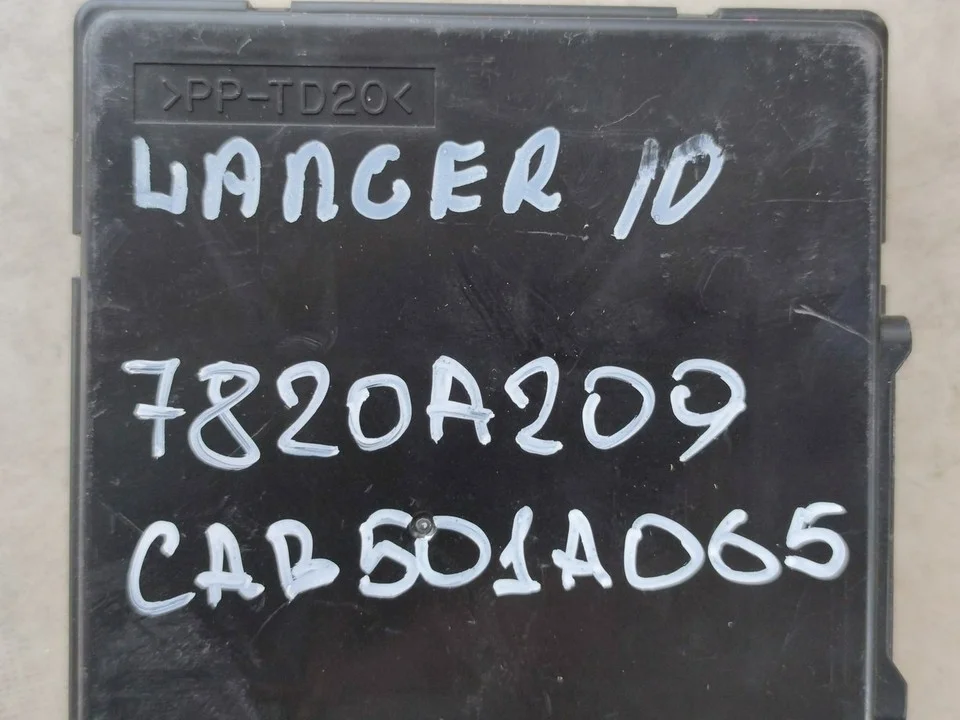 >PP-TD20<
LANCER 10
7820A209
CAB501A065